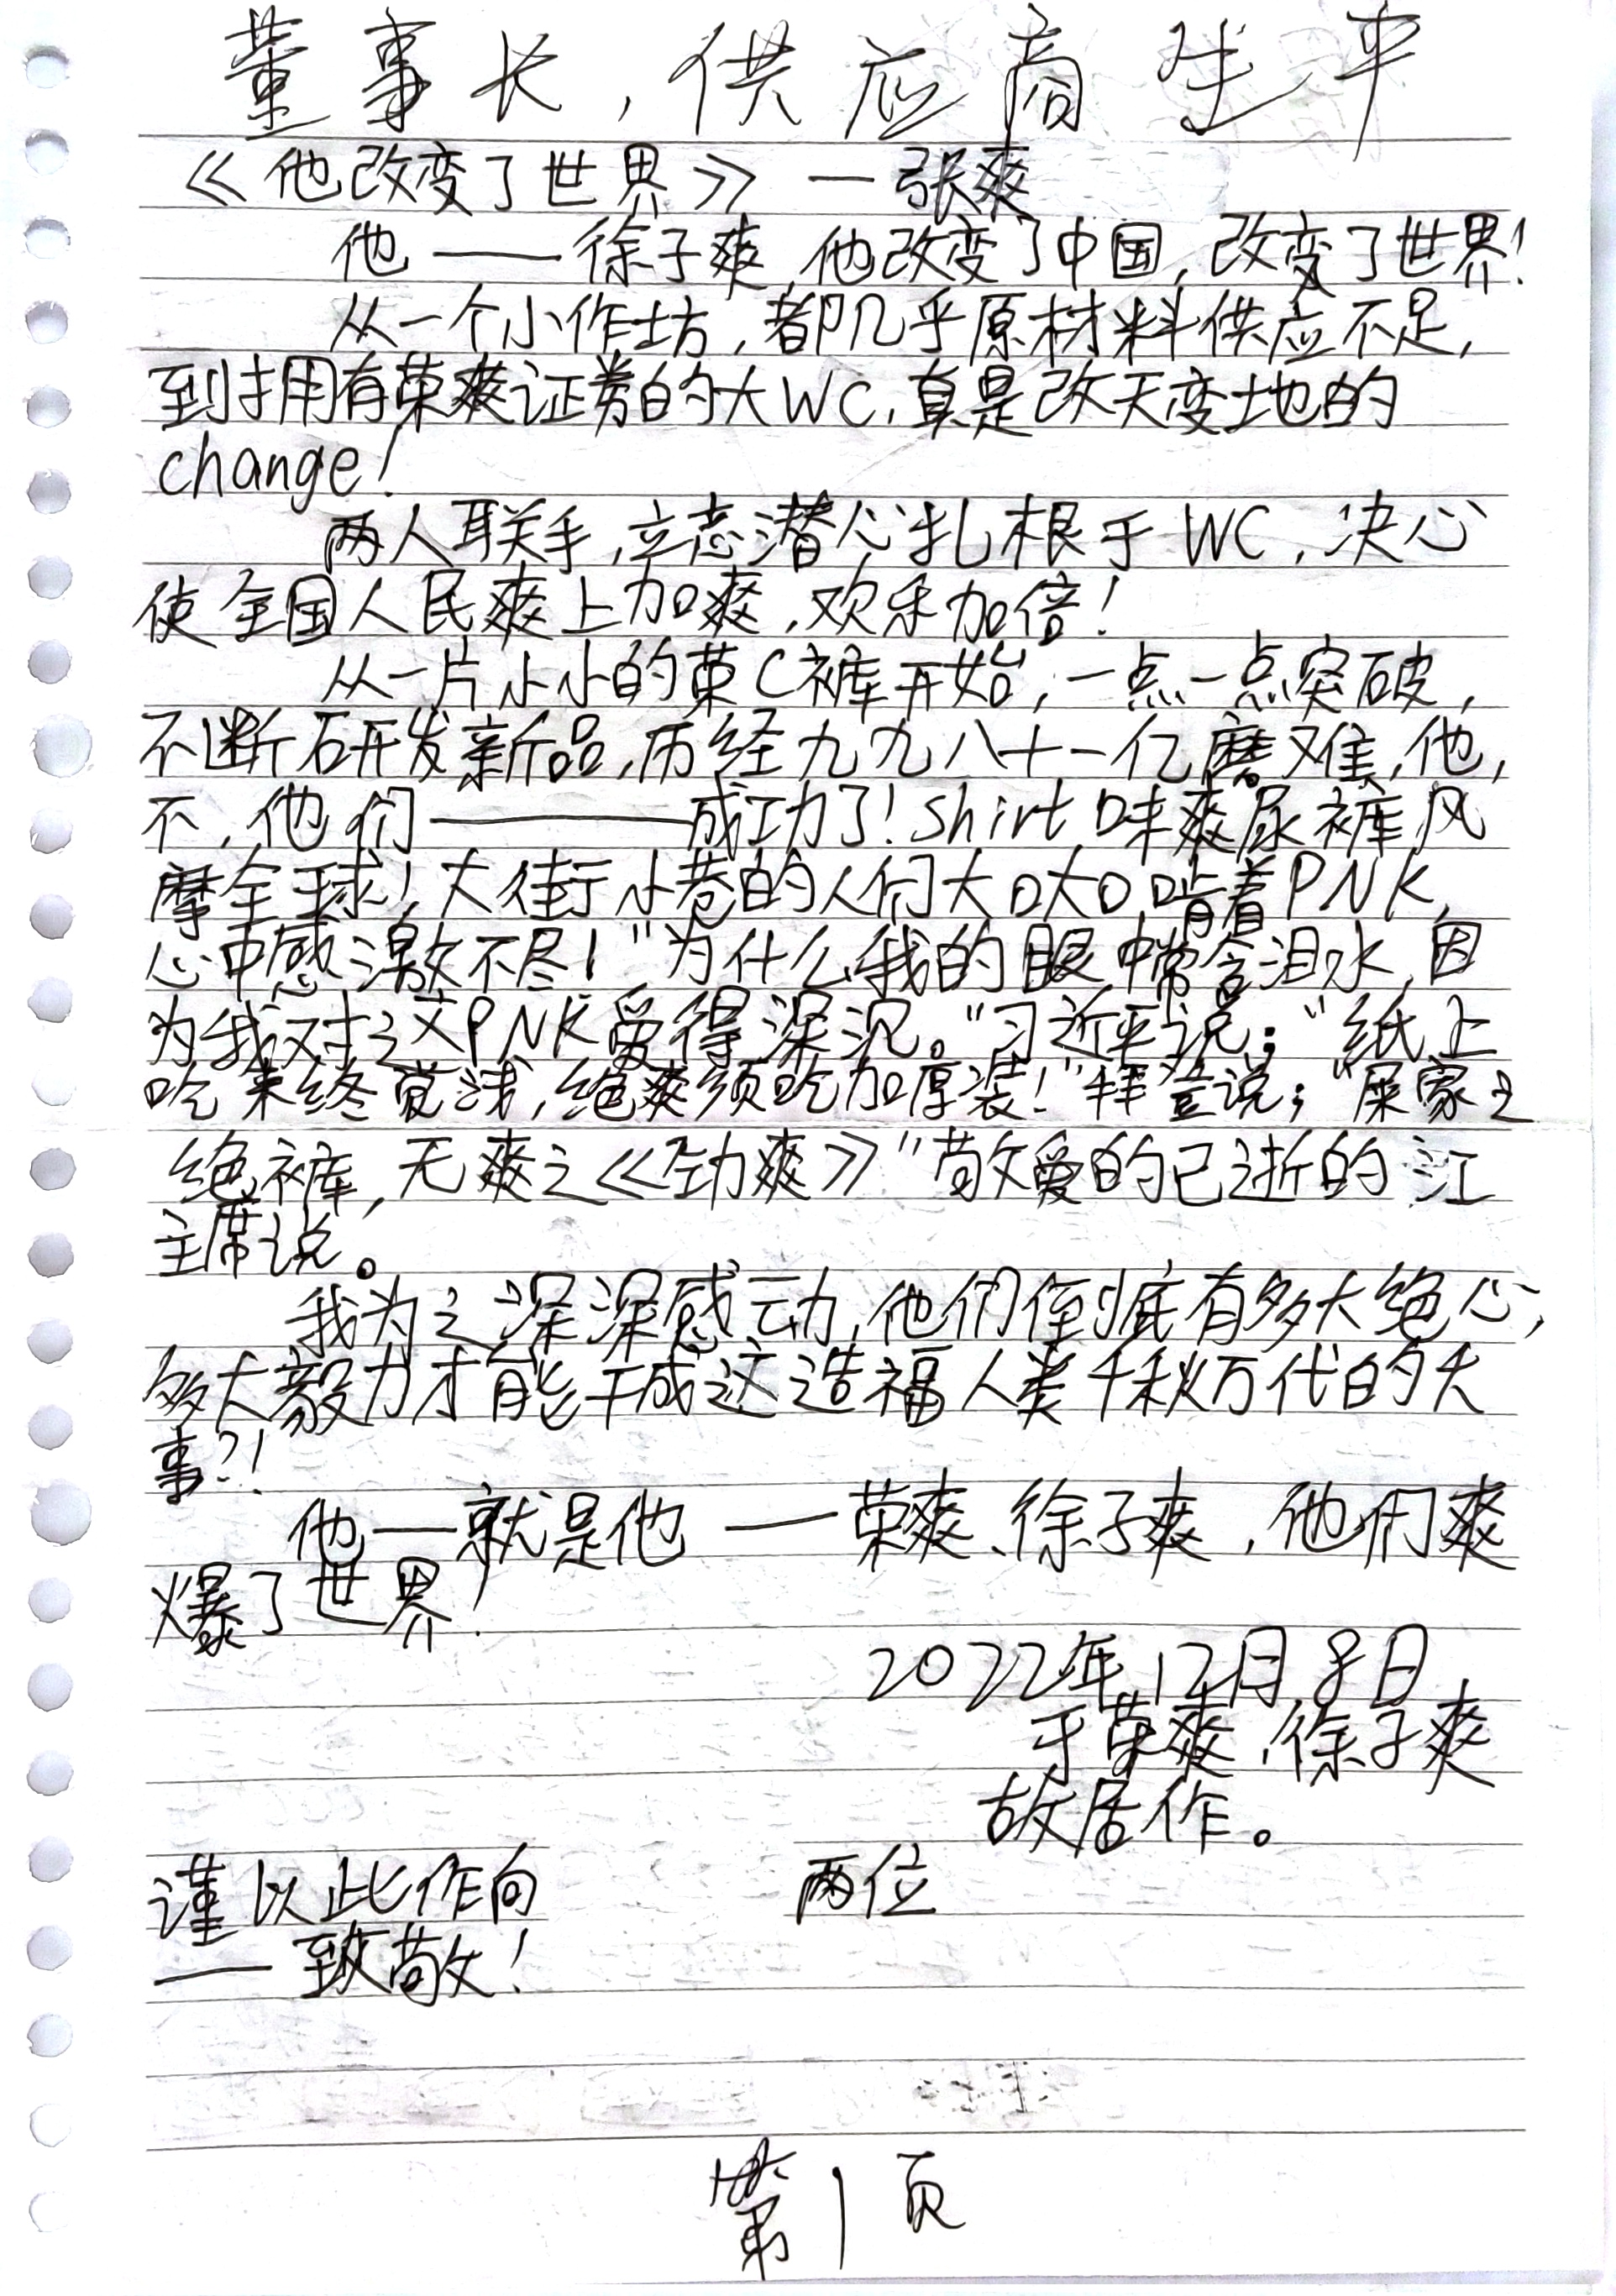 董事长，供应商生平
《他改变了世界》一张爽
他——徐子爽，他改变了中国，改变了世界！
从一个小作坊，都几乎原材料供应不足，
到拥有荣爽证券的大WC，真是改天变地的
change！
两人联手，立志潜心扎根于WC，决心
使全国人民爽上加爽，欢乐加倍！
从一片小小的荣C裤开始，一点一点突破，
不断研发新品，历经九九八十一亿磨难，他，
不，他们———成功了！shirt味爽尿裤风
摩全球！大街小巷的人们大口大口啃着PNK，
心中感激不尽！"为什么我的眼中常含泪水，因
为我对这PNK爱得深沉。"习近平说："纸上
吃来终觉浅，绝爽须吃加厚装！"拜登说："屎家之
绝裤，无爽之《劲爽》"敬爱的已逝的江
主席说。
我为之深深感动，他们到底有多大绝心，
多大毅力才能干成这造福人类千秋万代的大
事？！
他—就是他——荣爽、徐子爽，他们爽
爆了世界！
2022年12月8日
于荣爽、徐子爽
故居作。
谨以此作向 两位
——致敬！
第1页